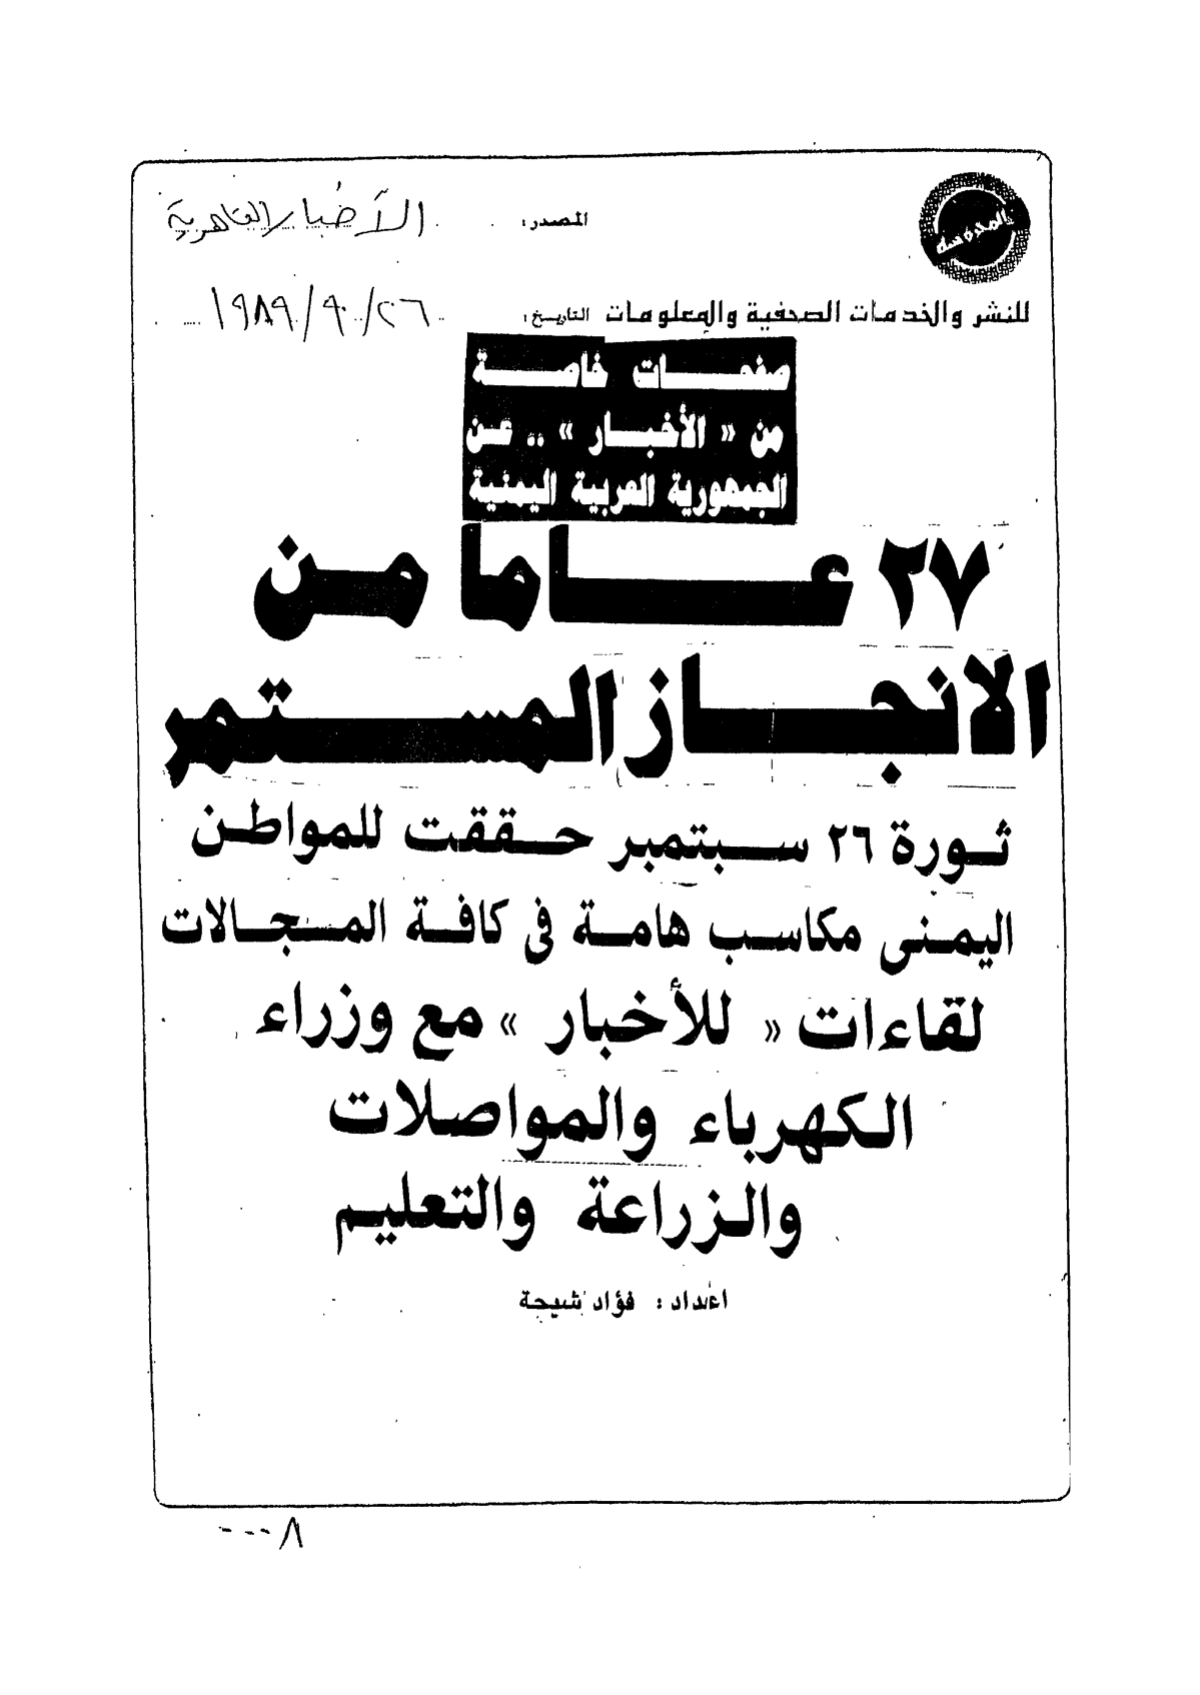 المحروسة
المصدر: الأخبار القاهرية
للنشر والخدمات الصحفية والمعلومات التاريخ: ٢٦/٩/١٩٨٩
صفحات خاصة
من « الأخبار » .. عن
الجمهورية العربية اليمنية
٢٧ عاما من
الانجاز المستمر
ثورة ٢٦ سبتمبر حققت للمواطن
اليمنى مكاسب هامة فى كافة المجالات
لقاءات « للأخبار » مع وزراء
الكهرباء والمواصلات
والزراعة والتعليم
اعداد : فؤاد شيحة